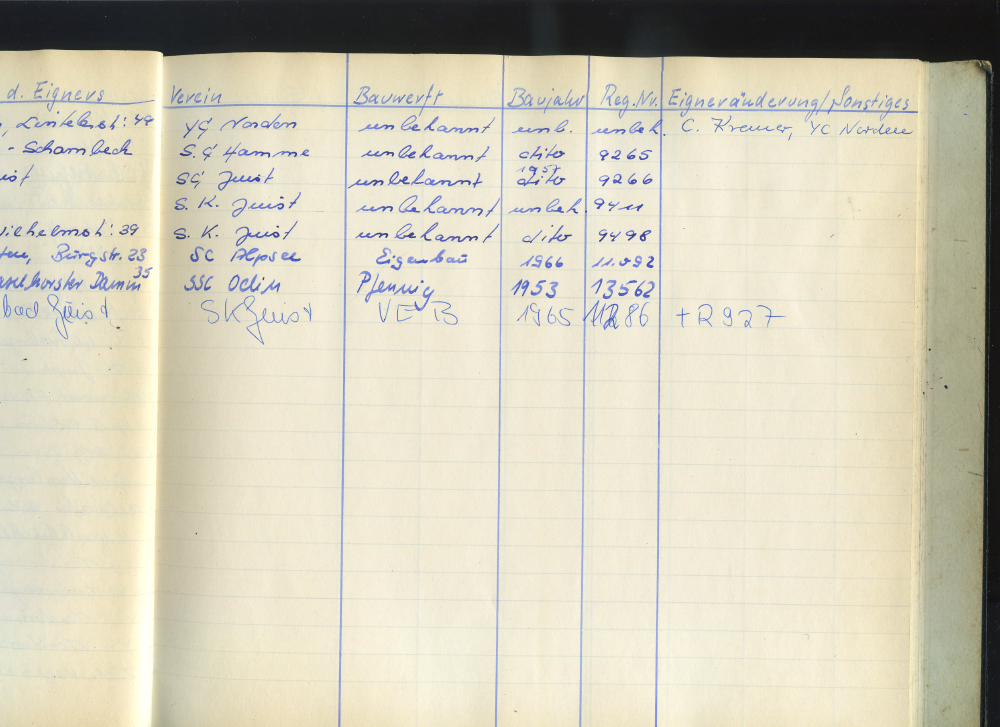 d. Eigners Verein Bauwerft Baujahr Reg.Nr. Eigneränderung/Sonstiges
49 YC Norden unbekannt unb. unbek. C. Kremer, YC Norden
- Scharnbeck S.C Hamme unbekannt dito 9265
SC Juist unbekannt 1957 dito 9266
S. K. Juist unbekannt unbek. 9411
39 S. K. Juist unbekannt dito 9498
Burgstr. 23 SC Alpsee Eigenbau 1966 11.092
Damm 35 SSC Odin Pfennig 1953 13562
bad Juist SKJuist VEB 1965 86 + R 927